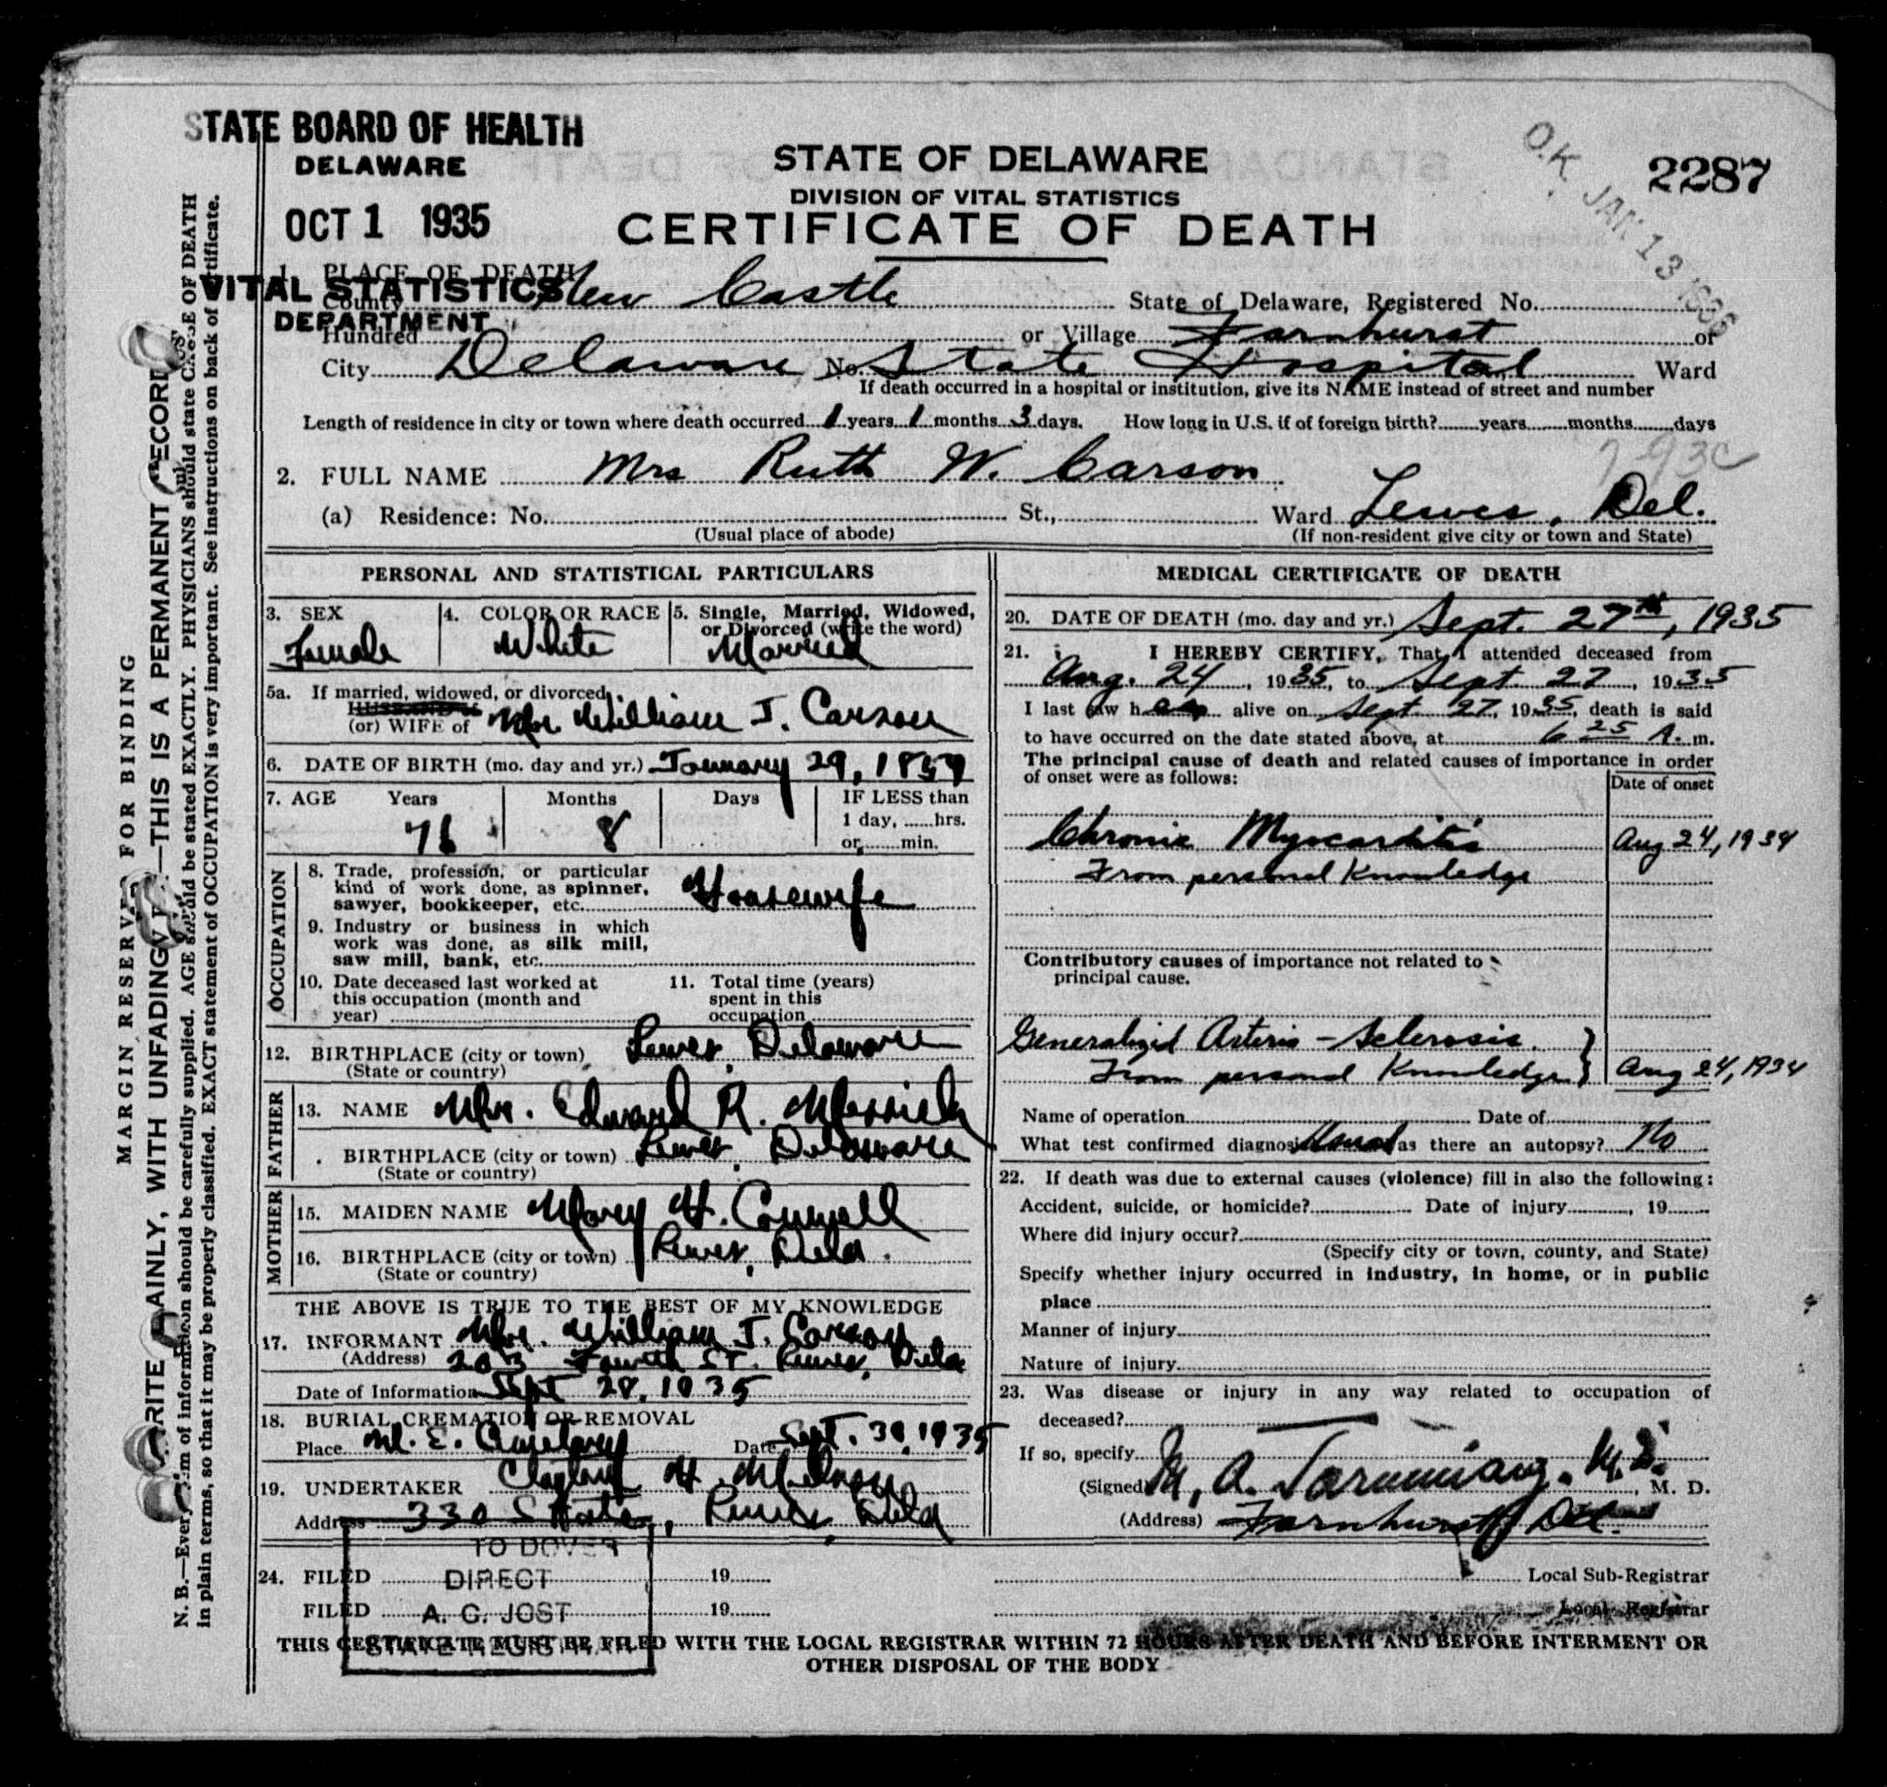 STATE BOARD OF HEALTH
DELAWARE
OCT 1 1935
VITAL STATISTICS
DEPARTMENT
STATE OF DELAWARE
DIVISION OF VITAL STATISTICS
CERTIFICATE OF DEATH
2287
O.K. JAN 13 1936
1. PLACE OF DEATH
County New Castle State of Delaware, Registered No.
Hundred or Village Farnhurst or
City Delaware No. State Hospital Ward
If death occurred in a hospital or institution, give its NAME instead of street and number
Length of residence in city or town where death occurred 1 years 1 months 3 days. How long in U.S. if of foreign birth? years months days
93c
2. FULL NAME Mrs Ruth W. Carson
(a) Residence: No. St., Ward Lewes, Del.
(Usual place of abode) (If non-resident give city or town and State)
PERSONAL AND STATISTICAL PARTICULARS
3. SEX 4. COLOR OR RACE 5. Single, Married, Widowed,
or Divorced (write the word)
Female White Married
5a. If married, widowed, or divorced
HUSBAND of
(or) WIFE of Mr. William J. Carson
6. DATE OF BIRTH (mo. day and yr.) January 29, 1859
7. AGE Years Months Days IF LESS than
1 day, hrs.
or min.
76 8
OCCUPATION
8. Trade, profession, or particular
kind of work done, as spinner,
sawyer, bookkeeper, etc. Housewife
9. Industry or business in which
work was done, as silk mill,
saw mill, bank, etc.
10. Date deceased last worked at
this occupation (month and
year)
11. Total time (years)
spent in this
occupation
12. BIRTHPLACE (city or town) Lewes, Delaware
(State or country)
FATHER
13. NAME Mr. Edward R. Messick
BIRTHPLACE (city or town) Lewes, Delaware
(State or country)
MOTHER
15. MAIDEN NAME Mary H. Conwell
16. BIRTHPLACE (city or town) Lewes, Dela.
(State or country)
THE ABOVE IS TRUE TO THE BEST OF MY KNOWLEDGE
17. INFORMANT Mr. William J. Carson
(Address) 203 Fourth St. Lewes, Dela
Date of Information Sept 28, 1935
18. BURIAL, CREMATION OR REMOVAL
Place M. E. Cemetery Date Sept. 30, 1935
19. UNDERTAKER H.
Address 330 State, Lewes, Dela
MEDICAL CERTIFICATE OF DEATH
20. DATE OF DEATH (mo. day and yr.) Sept. 27th, 1935
21. I HEREBY CERTIFY, That I attended deceased from
Aug. 24, 1935, to Sept. 27, 1935
I last saw her alive on Sept. 27, 1935, death is said
to have occurred on the date stated above, at 6 25 A. m.
The principal cause of death and related causes of importance in order
of onset were as follows:
Date of onset
Chronic Myocarditis Aug 24, 1934
From personal Knowledge
Contributory causes of importance not related to
principal cause.
Generalized Arterio-Sclerosis.
From personal Knowledge } Aug 24, 1934
Name of operation Date of
What test confirmed diagnosis Usual as there an autopsy? No
22. If death was due to external causes (violence) fill in also the following:
Accident, suicide, or homicide? Date of injury , 19
Where did injury occur?
(Specify city or town, county, and State)
Specify whether injury occurred in industry, in home, or in public
place
Manner of injury
Nature of injury
23. Was disease or injury in any way related to occupation of
deceased?
If so, specify
(Signed) M. A. Tarumianz. M.D., M. D.
(Address) Farnhurst, Del.
24. FILED 19 Local Sub-Registrar
FILED 19 Local Registrar
TO DOVER
DIRECT
A. C. JOST
STATE REGISTRAR
THIS CERTIFICATE MUST BE FILED WITH THE LOCAL REGISTRAR WITHIN 72 HOURS AFTER DEATH AND BEFORE INTERMENT OR
OTHER DISPOSAL OF THE BODY
MARGIN RESERVED FOR BINDING
WRITE PLAINLY, WITH UNFADING —THIS IS A PERMANENT RECORD
N. B.—Every item of information should be carefully supplied. AGE should be stated EXACTLY. PHYSICIANS should state CAUSE OF DEATH
in plain terms, so that it may be properly classified. EXACT statement of OCCUPATION is very important. See instructions on back of certificate.